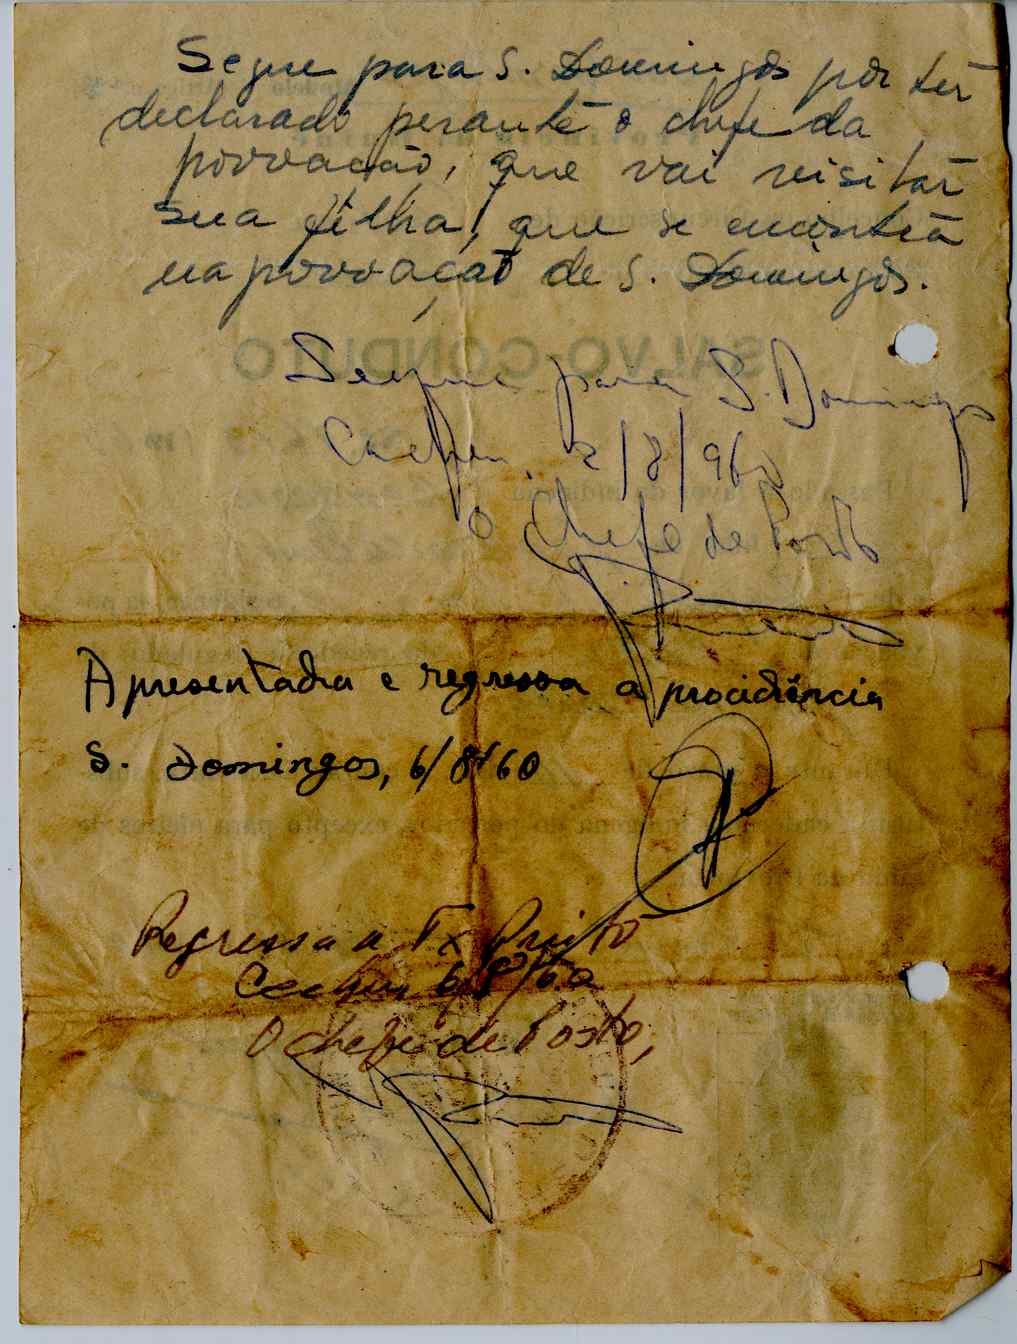 Segue para S. Domingos por ter
declarado perante o chefe da
povoação, que vai visitar
sua filha, que se encontra
na povoação de S. Domingos.
SALVO-CONDUTO
Segue para S. Domingos
2/8/960
O Chefe de Posto
Apresentada e regressa a procidência
S. Domingos, 6/8/60
Regressa a Tx Preito
6/8/60
O Chefe de Posto,